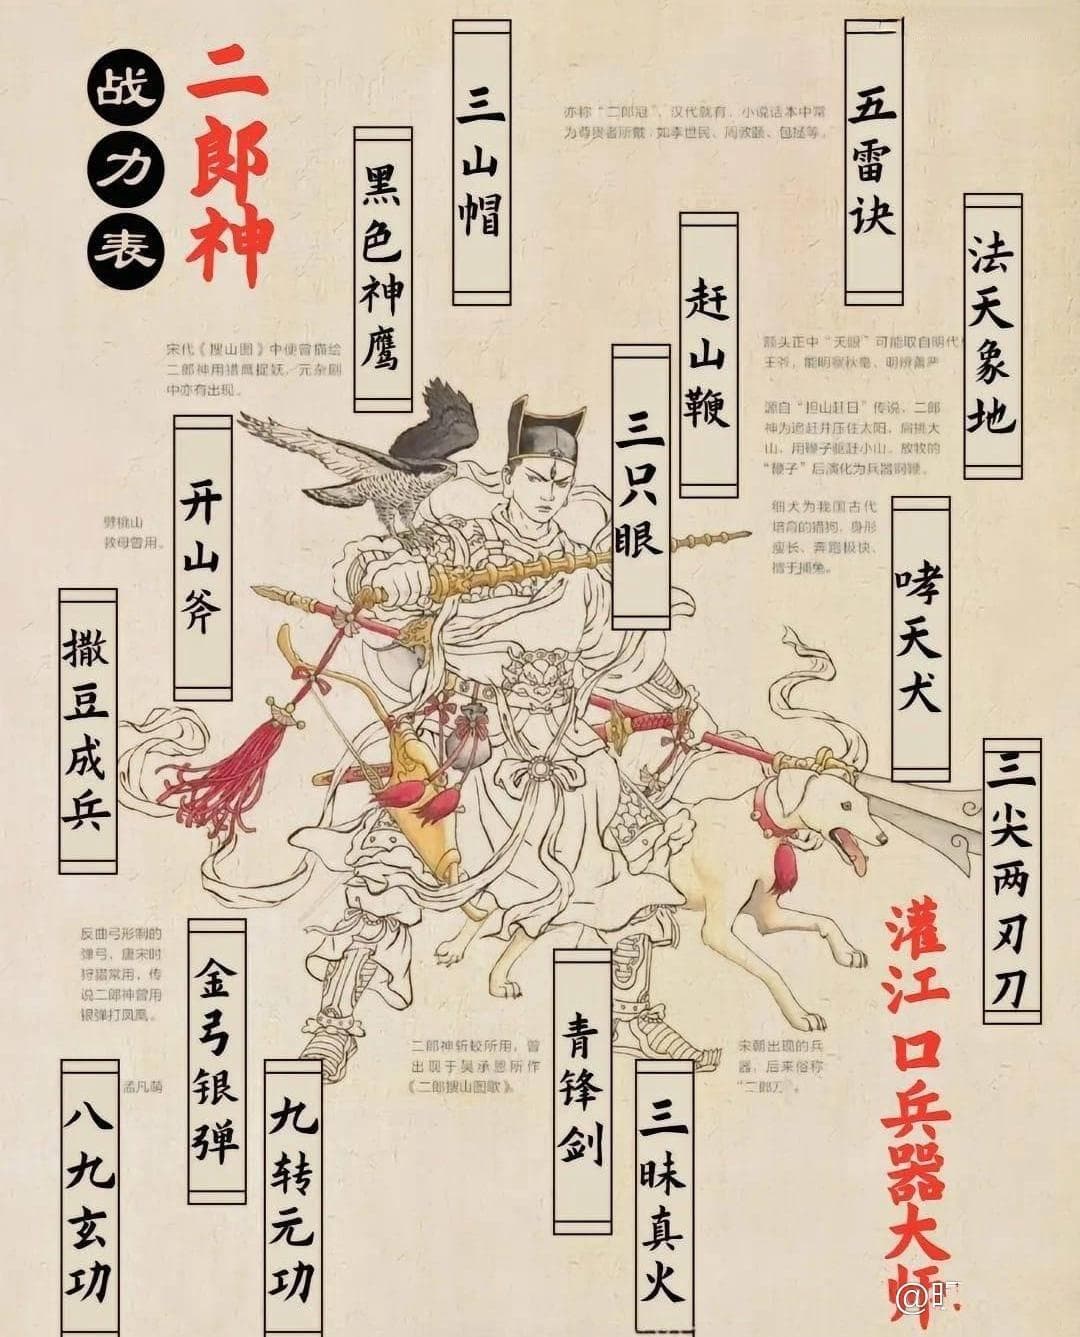 战力表
二郎神
三山帽
亦称“二郎冠”，汉代就有，小说话本中常
为尊贵者所戴，如李世民、周敦颐、包拯等。
五雷诀
黑色神鹰
法天象地
赶山鞭
宋代《搜山图》中便曾描绘
二郎神用猎鹰捉妖，元杂剧
中亦有出现。
额头正中“天眼”可能取自明代
王爷，能明察秋毫、明辨善严
三只眼
源自“担山赶日”传说，二郎
神为追赶并压住太阳，肩挑大
山，用鞭子驱赶小山。放牧的
“鞭子”后演化为兵器铜鞭。
开山斧
劈桃山
救母曾用。
细犬为我国古代
培育的猎狗，身形
瘦长、奔跑极快、
擅于捕兔。
哮天犬
撒豆成兵
三尖两刃刀
反曲弓形制的
弹弓，唐宋时
狩猎常用，传
说二郎神曾用
银弹打凤凰。
金弓银弹
青锋剑
二郎神斩蛟所用，曾
出现于吴承恩所作
《二郎搜山图歌》。
宋朝出现的兵
器，后来俗称
“二郎刀”。
孟凡萌
八九玄功
九转元功
三昧真火
灌江口兵器大师